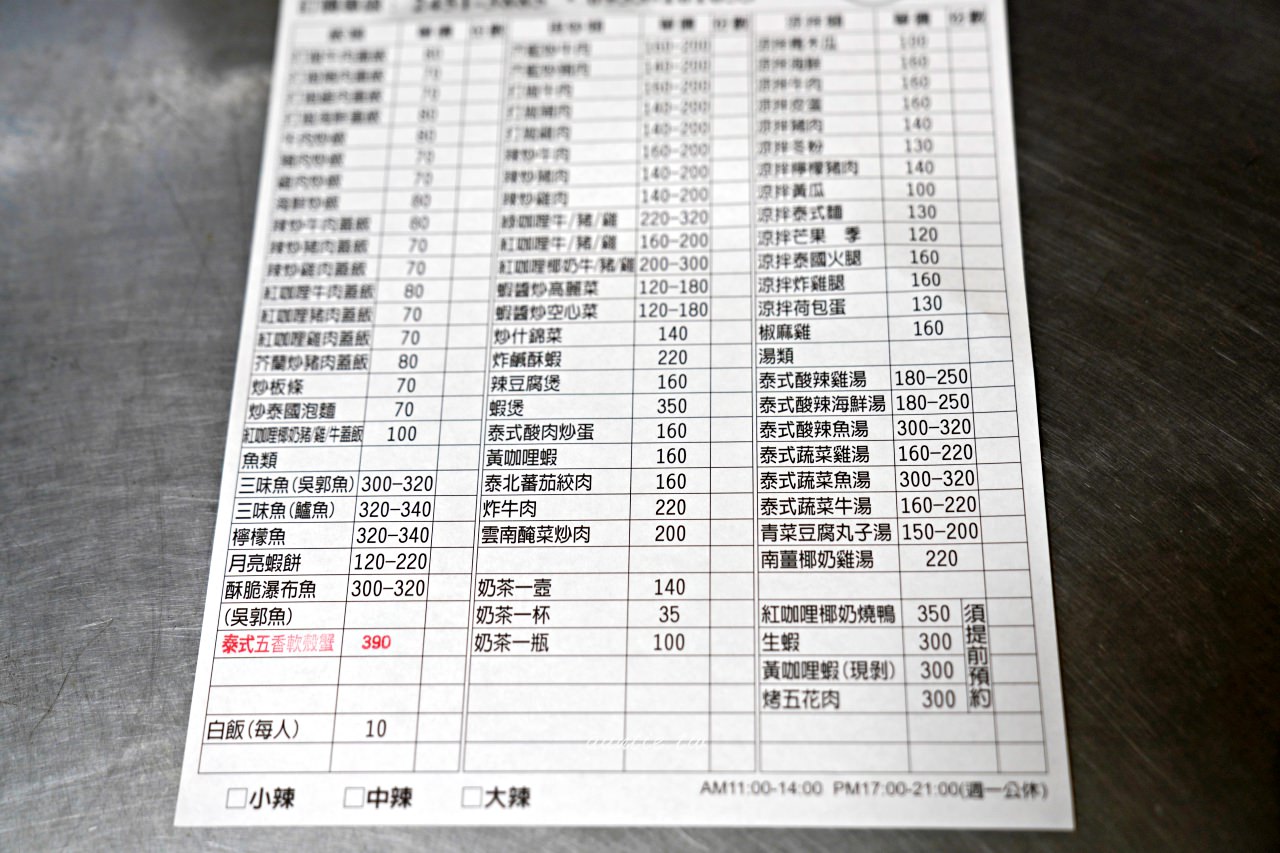 單價
單價
單價
牛肉炒飯 80
豬肉炒飯 70
雞肉炒飯 70
海鮮炒飯 80
辣炒牛肉蓋飯 80
辣炒豬肉蓋飯 70
辣炒雞肉蓋飯 70
紅咖哩牛肉蓋飯 80
紅咖哩豬肉蓋飯 70
紅咖哩雞肉蓋飯 70
芥蘭炒豬肉蓋飯 80
炒板條 70
炒泰國泡麵 70
紅咖哩椰奶豬/雞/牛蓋飯 100
魚類
三味魚(吳郭魚) 300-320
三味魚(鱸魚) 320-340
檸檬魚 320-340
月亮蝦餅 120-220
酥脆瀑布魚 300-320
(吳郭魚)
泰式五香軟殼蟹 390
白飯(每人) 10
辣炒牛肉 160-200
辣炒豬肉 140-200
辣炒雞肉 140-200
綠咖哩牛/豬/雞 220-320
紅咖哩牛/豬/雞 160-200
紅咖哩椰奶牛/豬/雞 200-300
蝦醬炒高麗菜 120-180
蝦醬炒空心菜 120-180
炒什錦菜 140
炸鹹酥蝦 220
辣豆腐煲 160
蝦煲 350
泰式酸肉炒蛋 160
黃咖哩蝦 160
泰北蕃茄絞肉 160
炸牛肉 220
雲南醃菜炒肉 200
奶茶一壺 140
奶茶一杯 35
奶茶一瓶 100
涼拌青木瓜 100
涼拌海鮮 160
涼拌牛肉 160
涼拌皮蛋 160
涼拌豬肉 140
涼拌冬粉 130
涼拌檸檬豬肉 140
涼拌黃瓜 100
涼拌泰式麵 130
涼拌芒果 季 120
涼拌泰國火腿 160
涼拌炸雞腿 160
涼拌荷包蛋 130
椒麻雞 160
湯類
泰式酸辣雞湯 180-250
泰式酸辣海鮮湯 180-250
泰式酸辣魚湯 300-320
泰式蔬菜雞湯 160-220
泰式蔬菜魚湯 300-320
泰式蔬菜牛湯 160-220
青菜豆腐丸子湯 150-200
南薑椰奶雞湯 220
紅咖哩椰奶燒鴨 350
生蝦 300
黃咖哩蝦(現剝) 300
烤五花肉 300
須提前預約
□小辣 □中辣 □大辣
AM11:00-14:00 PM17:00-21:00(週一公休)